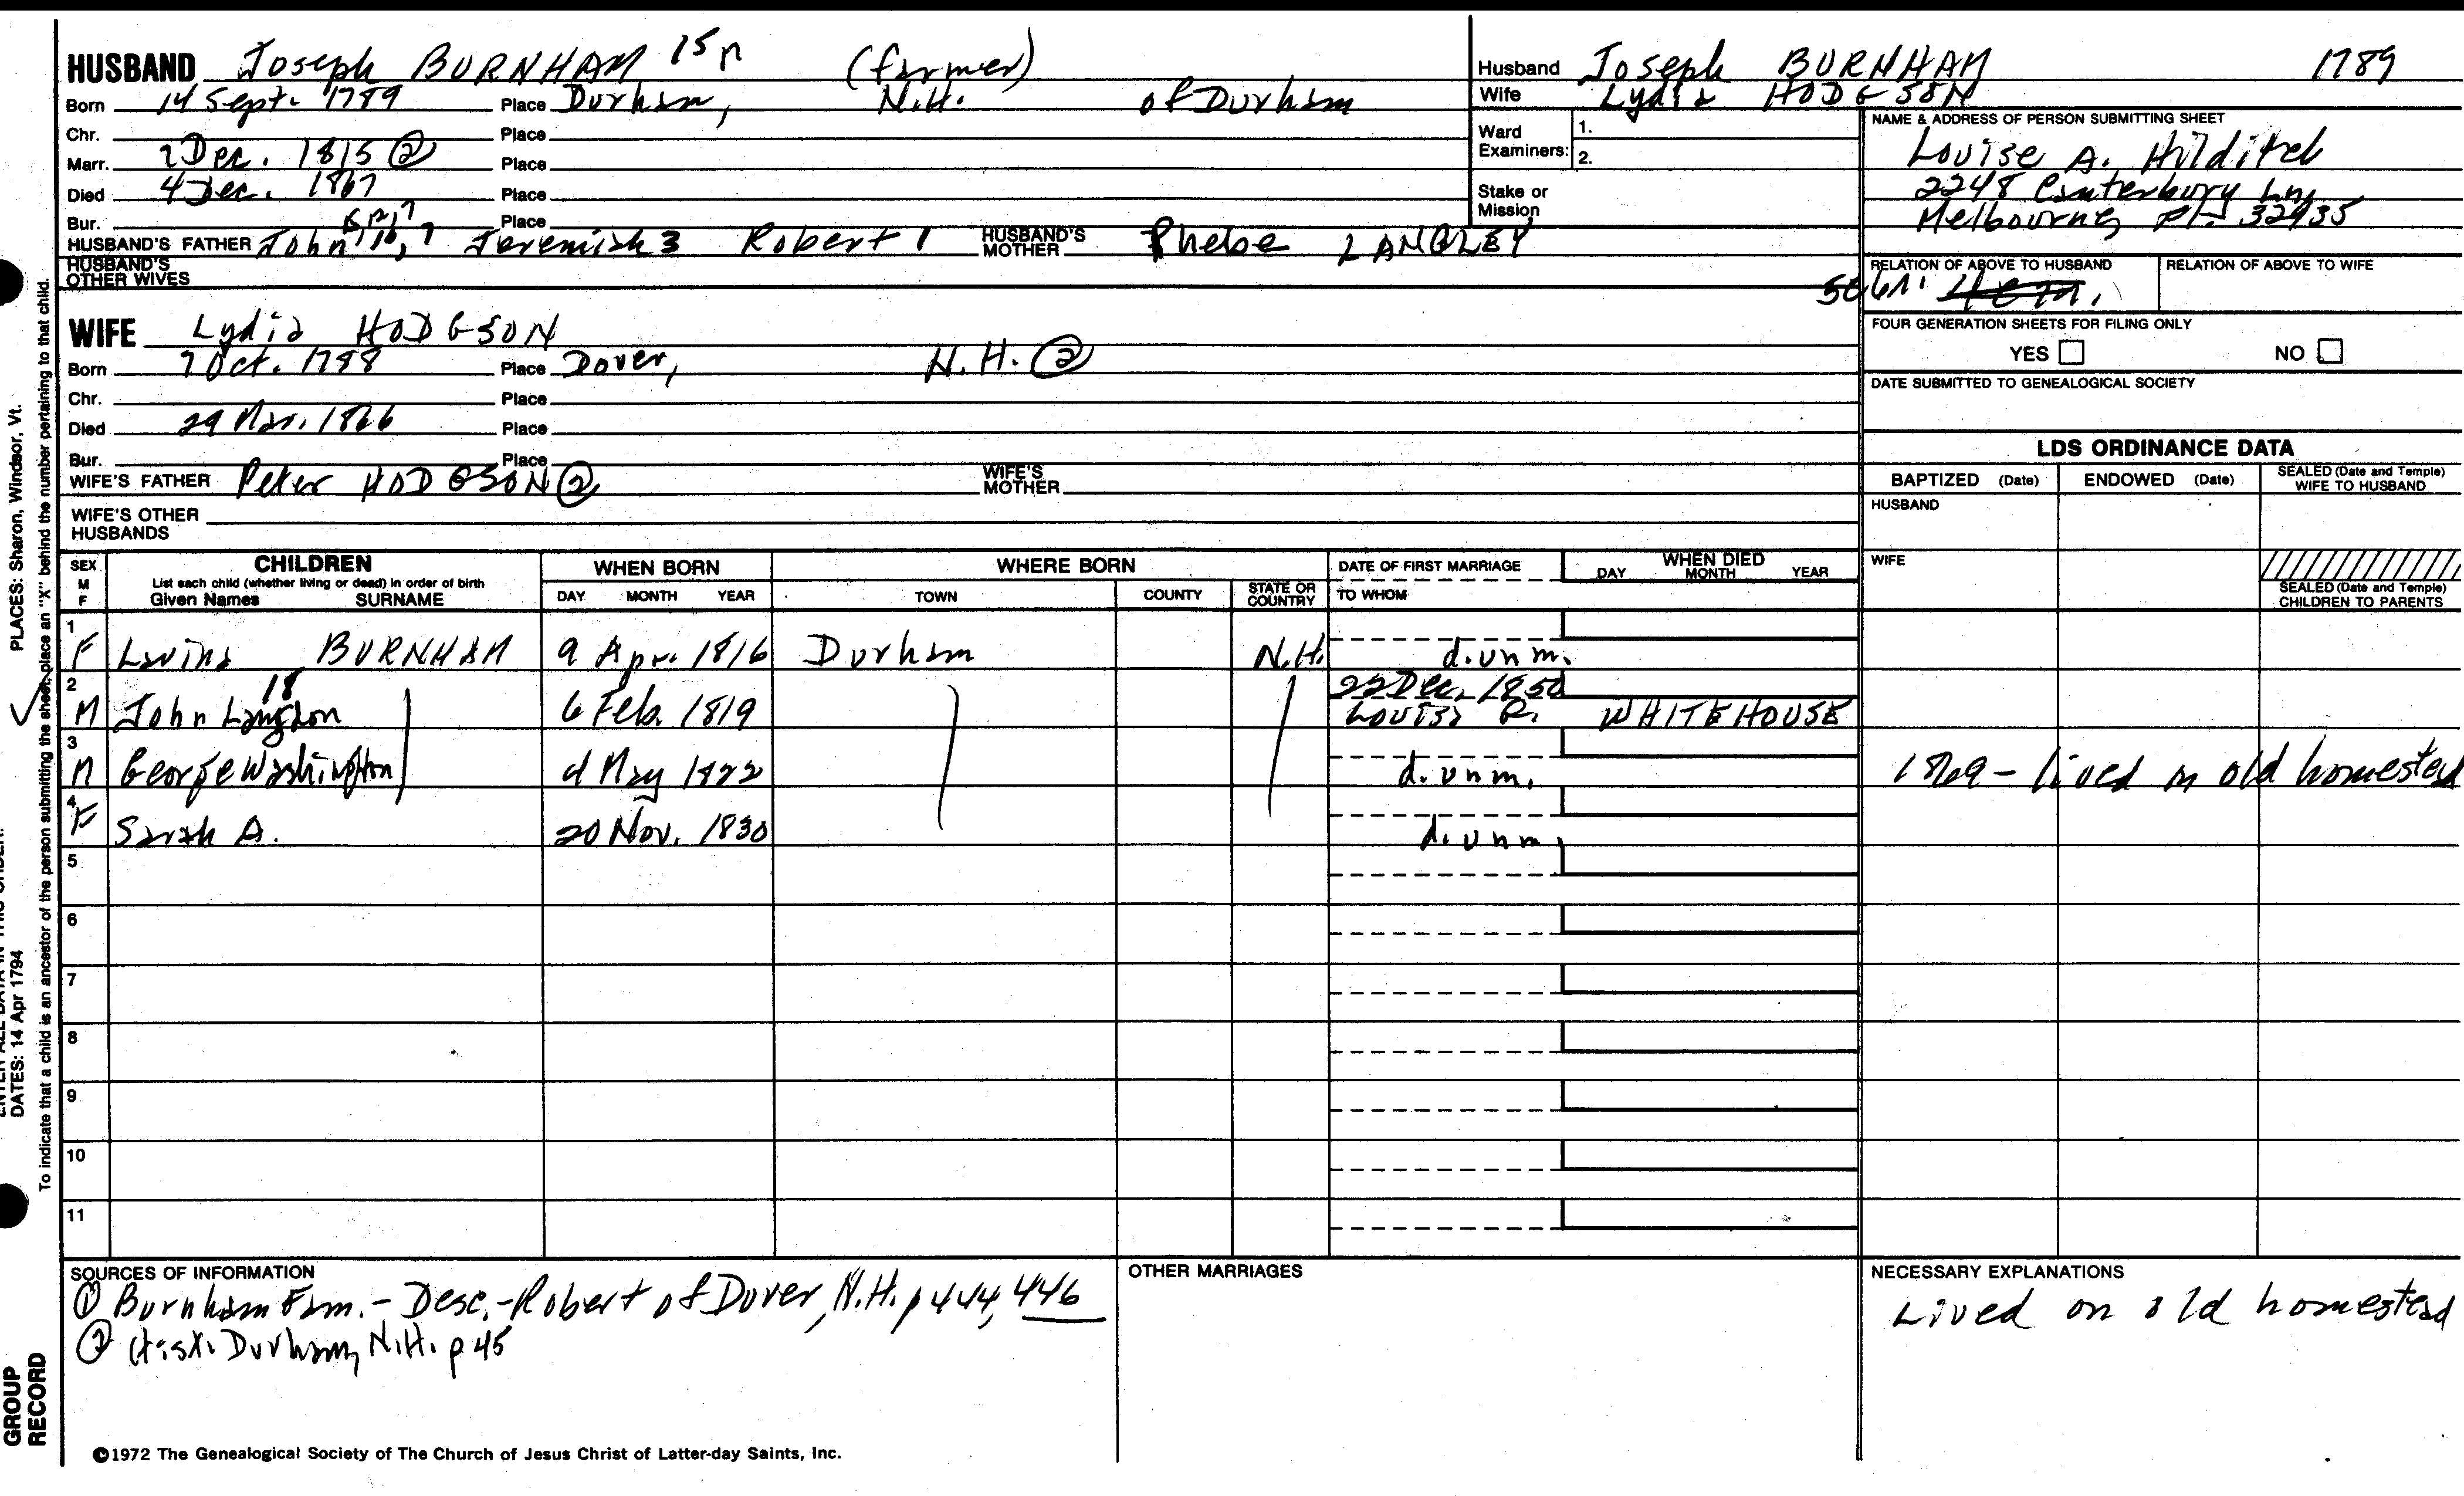 HUSBAND Joseph BURNHAM 15n (farmer)
Born 14 Sept. 1789 Place Durham, N.H. of Durham
Chr. Place
Marr. 2 Dec. 1815 ② Place
Died 4 Dec. 1867 Place
Bur. Place
HUSBAND'S FATHER John Jeremiah 3 Robert 1 HUSBAND'S MOTHER Phebe LANGLEY
HUSBAND'S OTHER WIVES
WIFE Lydia HODGSON
Born 7 Oct. 1788 Place Dover, N.H. ②
Chr. Place
Died 29 Mar. 1866 Place
Bur. Place
WIFE'S FATHER Peter HODGSON ② WIFE'S MOTHER
WIFE'S OTHER HUSBANDS
Husband Joseph BURNHAM 1789
Wife Lydia HODGSON
Ward Examiners: 1.
2.
Stake or Mission
NAME & ADDRESS OF PERSON SUBMITTING SHEET
Louise A. Hilditch
2248 Canterbury Ln,
Melbourne, Fl. 32935
RELATION OF ABOVE TO HUSBAND RELATION OF ABOVE TO WIFE
FOUR GENERATION SHEETS FOR FILING ONLY
YES NO
DATE SUBMITTED TO GENEALOGICAL SOCIETY
LDS ORDINANCE DATA
BAPTIZED (Date) ENDOWED (Date) SEALED (Date and Temple) WIFE TO HUSBAND
HUSBAND
WIFE
SEALED (Date and Temple) CHILDREN TO PARENTS
SEX M F CHILDREN WHEN BORN WHERE BORN DATE OF FIRST MARRIAGE WHEN DIED
List each child (whether living or dead) in order of birth
Given Names SURNAME DAY MONTH YEAR TOWN COUNTY STATE OR COUNTRY TO WHOM DAY MONTH YEAR
1 F Lavina BURNHAM 9 Apr. 1816 Durham N.H. d.unm.
2 M John Langdon 18 6 Feb. 1819 22 Dec. 1850 Louisa R. WHITEHOUSE
3 M George Washington May 1822 d.unm. 1869 - lived on old homestead
4 F Sarah A. 20 Nov. 1830 d.unm.
5
6
7
8
9
10
11
SOURCES OF INFORMATION
① Burnham Fam. - Desc. - Robert of Dover, N.H. p 444, 446
② Hist. Durham, N.H. p 45
OTHER MARRIAGES
NECESSARY EXPLANATIONS
Lived on old homestead
©1972 The Genealogical Society of The Church of Jesus Christ of Latter-day Saints, Inc.
PLACES: Sharon, Windsor, Vt.
DATES: 14 Apr 1794
To indicate that a child is an ancestor of the person submitting the sheet, place an "X" behind the number pertaining to that child.
GROUP
RECORD